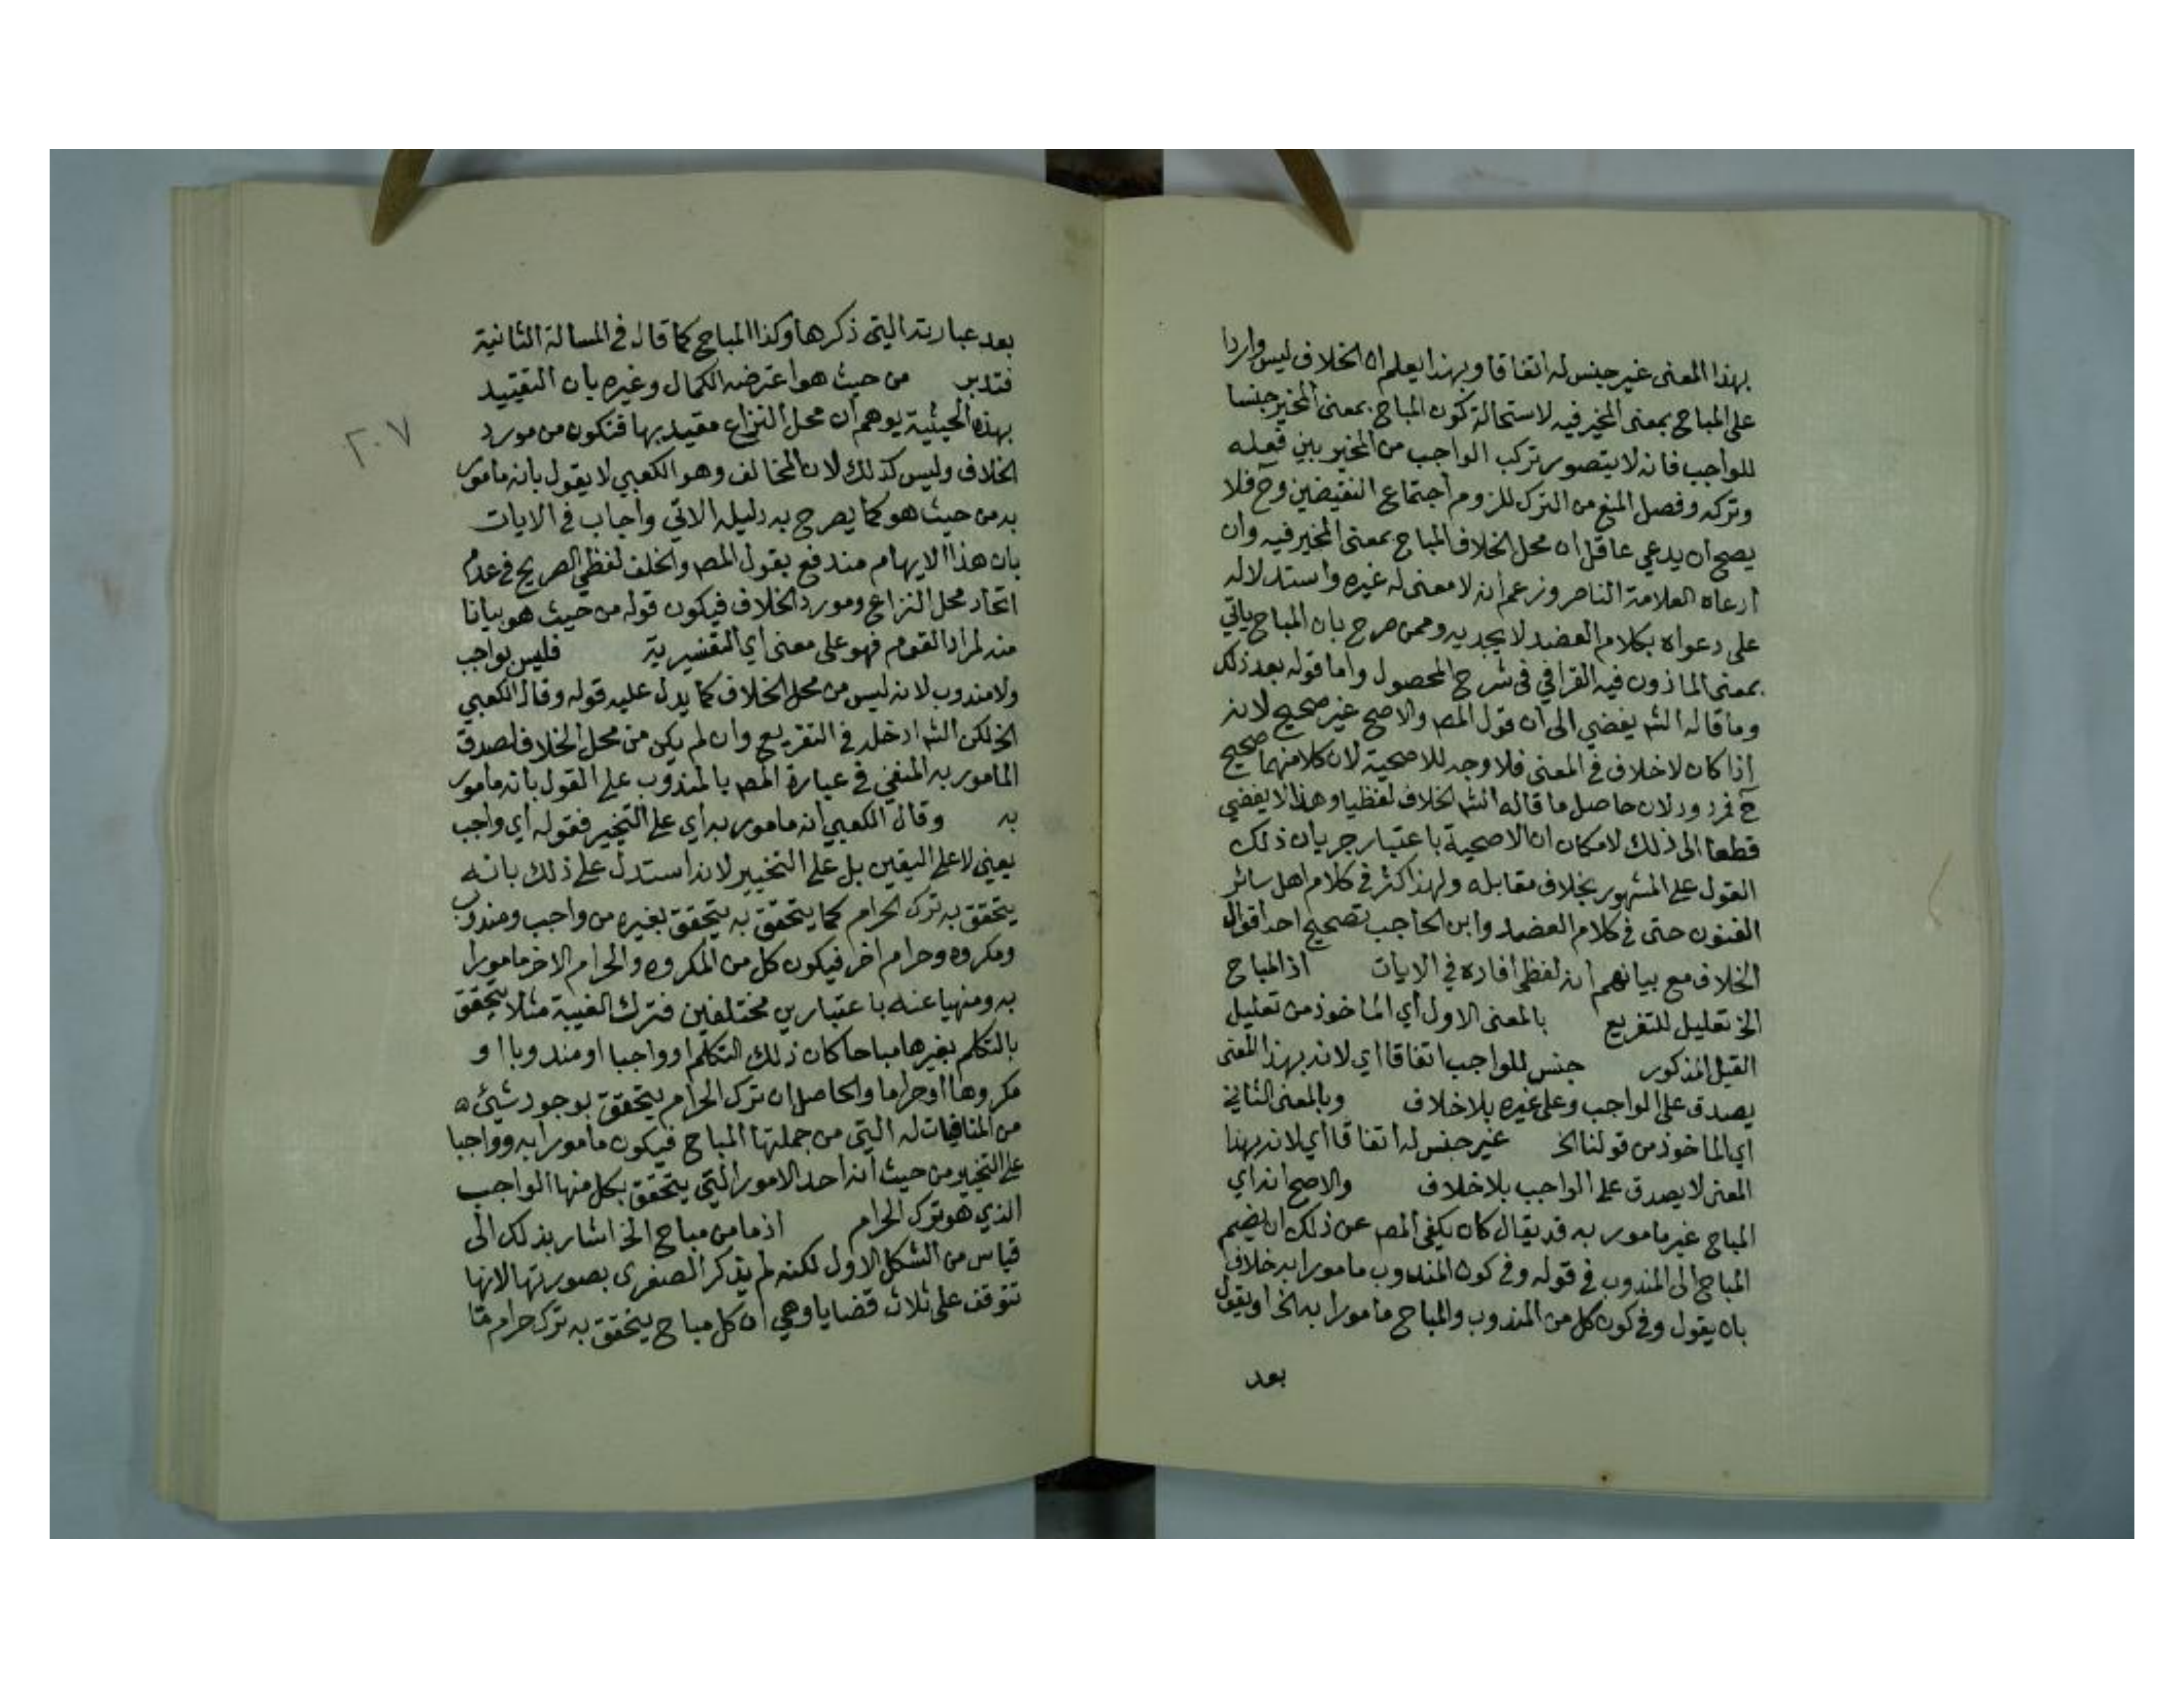 بهذا المعنى غير جنس له اتفاقا وبهذا يعلم ان الخلاف ليس واردا
على المباح بمعنى المخير فيه لاستحالة كون المباح بمعنى المخير جنسا
للواجب فانه لا يتصور تركب الواجب من المخير بين فعله
وتركه وفصل المنع من الترك للزوم اجتماع النقيضين وح فلا
يصح ان يدعي عاقل ان محل الخلاف المباح بمعنى المخير فيه وان
ادعاه العلامة الناصر وزعم انه لا معنى له غيره واستدلاله
على دعواه بكلام العضد لا يجديه وممن صرح بان المباح ياتي
بمعنى الماذون فيه القرافي في شرح المحصول واما قوله بعد ذلك
وما قاله الشه يفضي الى ان قول المصه والاصح غير صحيح لانه
اذا كان لا خلاف في المعنى فلا وجه للاصحية لان كلا منهما صحيح
ح فمردود لان حاصل ما قاله الشه الخلاف لفظيا وهذا لا يفضي
قطعا الى ذلك لامكان ان الاصحية باعتبار جريان ذلك
القول على المشهور بخلاف مقابله ولهذا كثر في كلام اهل سائر
الفنون حتى في كلام العضد وابن الحاجب تصحيح احد اقوال
الخلاف مع بيانهم انه لفظي افاده في الايات اذ المباح
الخ تعليل للتفريع بالمعنى الاول أي الماخوذ من تعليل
القيل المذكور جنس للواجب اتفاقا اي لانه بهذا المعنى
يصدق على الواجب وعلى غيره بلا خلاف وبالمعنى الثاني
اي الماخوذ من قولنا الخ غير جنس له اتفاقا أي لانه بهذا
المعنى لا يصدق على الواجب بلا خلاف والاصح انه أي
المباح غير مامور به قد يقال كان يكفي المصه عن ذلك ان يضم
المباح الى المندوب في قوله وفي كون المندوب مامورا به خلاف
بان يقول وفي كون كل من المندوب والمباح مامورا به الخ او يقول
بعد
بعد عبارته التي ذكرها وكذا المباح كما قال في المسالة الثانية
فتدبر من حيث هو اعترضه الكمال وغيره بان التقييد
بهذه الحيثية يوهم ان محل النزاع مقيد بها فتكون من مورد
٢٠٧
الخلاف وليس كذلك لان المخالف وهو الكعبي لا يقول بانه مامور
به من حيث هو كما يصرح به دليله الاتي واجاب في الايات
بان هذا الايهام مندفع بقول المصه والخلف لفظي الصريح في عدم
اتحاد محل النزاع ومورد الخلاف فيكون قوله من حيث هو بيانا
منه لمراد القوم فهو على معنى أي التفسيرية فليس بواجب
ولا مندوب لانه ليس من محل الخلاف كما يدل عليه قوله وقال الكعبي
الخ لكن الشه ادخله في التفريع وان لم يكن من محل الخلاف لصدق
المامور به المنفي في عبارة المصه بالمندوب على القول بانه مامور
به وقال الكعبي انه مامور به أي على التخيير فقوله أي واجب
يعني لا على اليقين بل على التخيير لانه استدل على ذلك بانه
يتحقق به ترك الحرام كما يتحقق به يتحقق بغيره من واجب ومندوب
ومكروه وحرام اخر فيكون كل من المكروه والحرام الاخر مامورا
به ومنهيا عنه باعتبارين مختلفين فترك الغيبة مثلا يتحقق
بالتكلم بغيرها مباحا كان ذلك التكلم او واجبا او مندوبا او
مكروها او حراما والحاصل ان ترك الحرام يتحقق بوجود شيئ
من المنافيات له التي من جملتها المباح فيكون مامورا به وواجبا
على التخيير من حيث انه احد الامور التي يتحقق بكل منها الواجب
الذي هو ترك الحرام اذ ما من مباح الخ اشار بذلك الى
قياس من الشكل الاول لكنه لم يذكر الصغرى بصورتها لانها
تتوقف على ثلاث قضايا وهي ان كل مباح يتحقق به ترك حرام ما